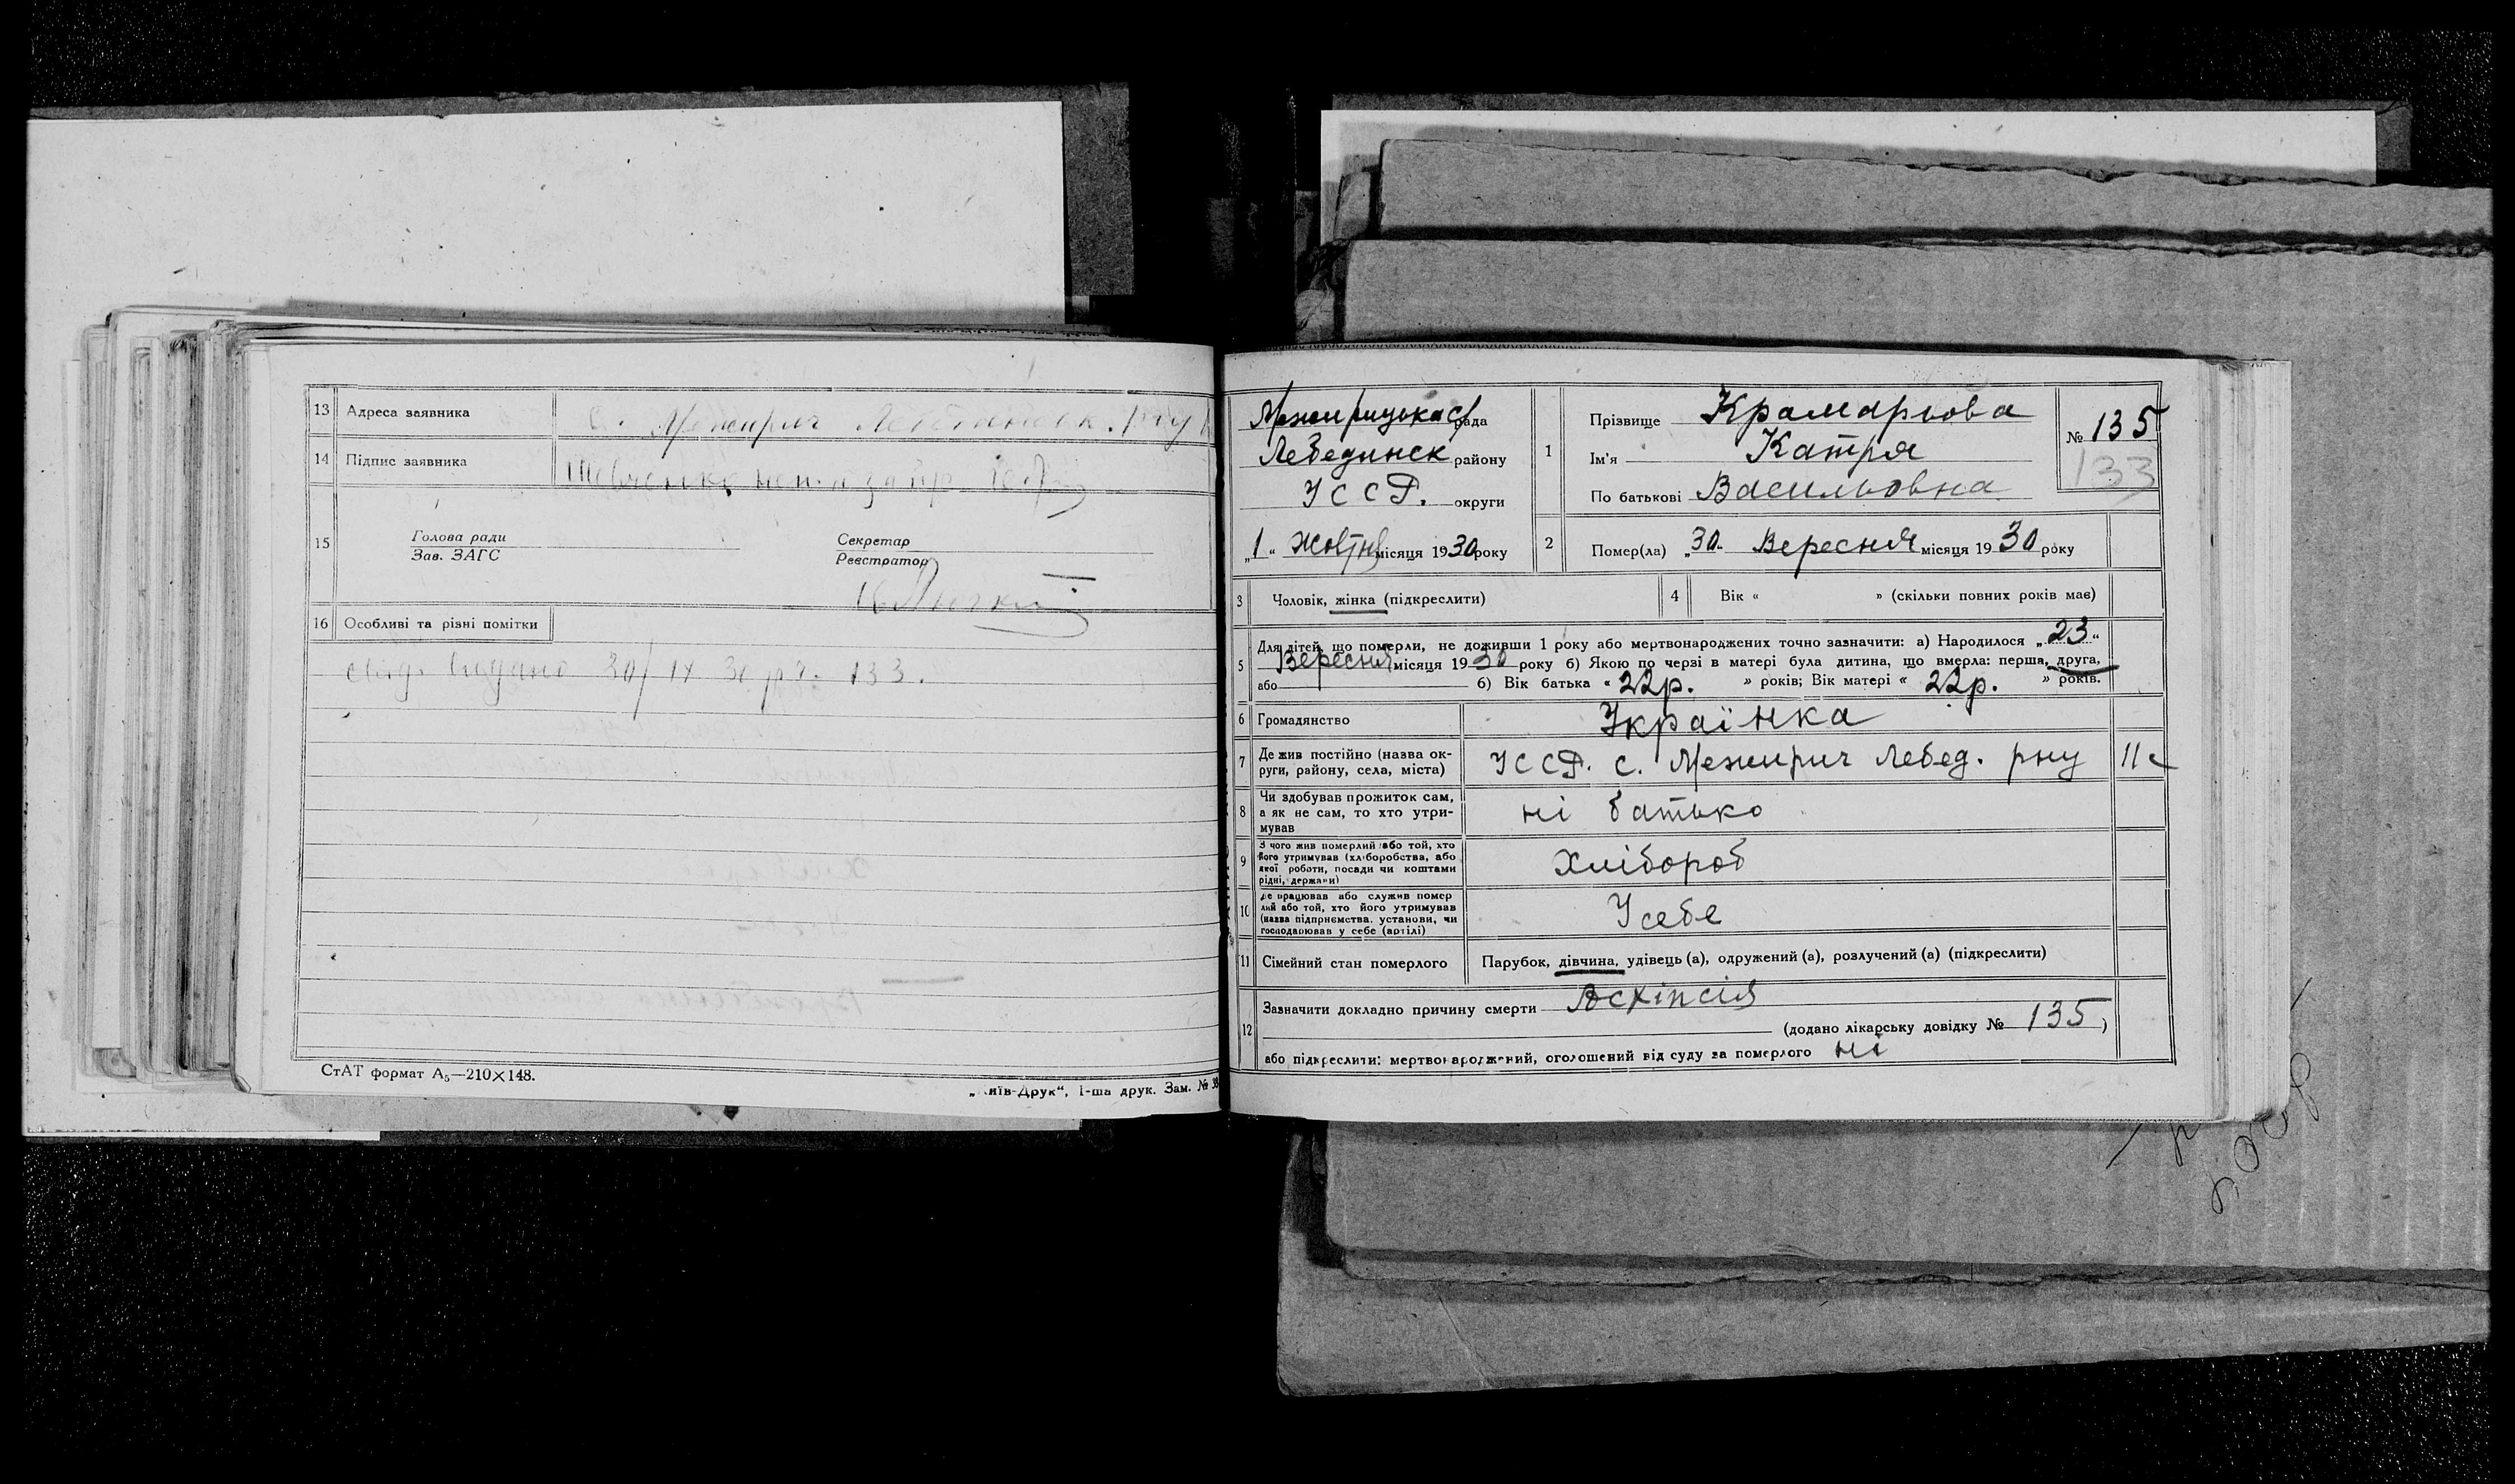 13 Адреса заявника с. Межирич Лебединськ. р-ну
14 Підпис заявника Шевченко неп. а за пр.
15 Голова ради
Зав. ЗАГС
Секретар
Реєстратор
16 Особливі та різні помітки
свід. видано 30/IX 30 р. 133.
СтАТ формат А₅—210×148.
„Київ-Друк“, 1-ша друк. Зам. № 38
Межирицька с/рада
Лебединськ району
УССР. округи
„1“ Жовтня місяця 1930 року
1 Прізвище Крамарьова
Ім'я Катря
По батькові Васильовна
№ 135
133
2 Помер(ла) „30“ Вересня місяця 1930 року
3 Чоловік, жінка (підкреслити)
4 Вік « » (скільки повних років має)
5 Для дітей, що померли, не доживши 1 року або мертвонароджених точно зазначити: а) Народилося „23“
Вересня місяця 1930 року б) Якою по черзі в матері була дитина, що вмерла: перша, друга,
або б) Вік батька « 22р. » років; Вік матері « 22р. » років.
6 Громадянство Українка
7 Де жив постійно (назва округи, району, села, міста) УССР. с. Межирич Лебед. рну 11с
8 Чи здобував прожиток сам,
а як не сам, то хто утри-
мував ні батько
9 З чого жив померлий або той, хто
його утримував (хліборобства, або
якої роботи, посади чи коштами
рідні, держави) Хлібороб
10 Де працював або служив помер
лий або той, хто його утримував
(назва підприємства, установи, чи
господарював у себе (артілі) Усебе
11 Сімейний стан померлого Парубок, дівчина, удівець (а), одружений (а), розлучений (а) (підкреслити)
12 Зазначити докладно причину смерти Асхіпсія
(додано лікарську довідку № 135)
або підкреслити: мертвонароджений, оголошений від суду за померлого ні